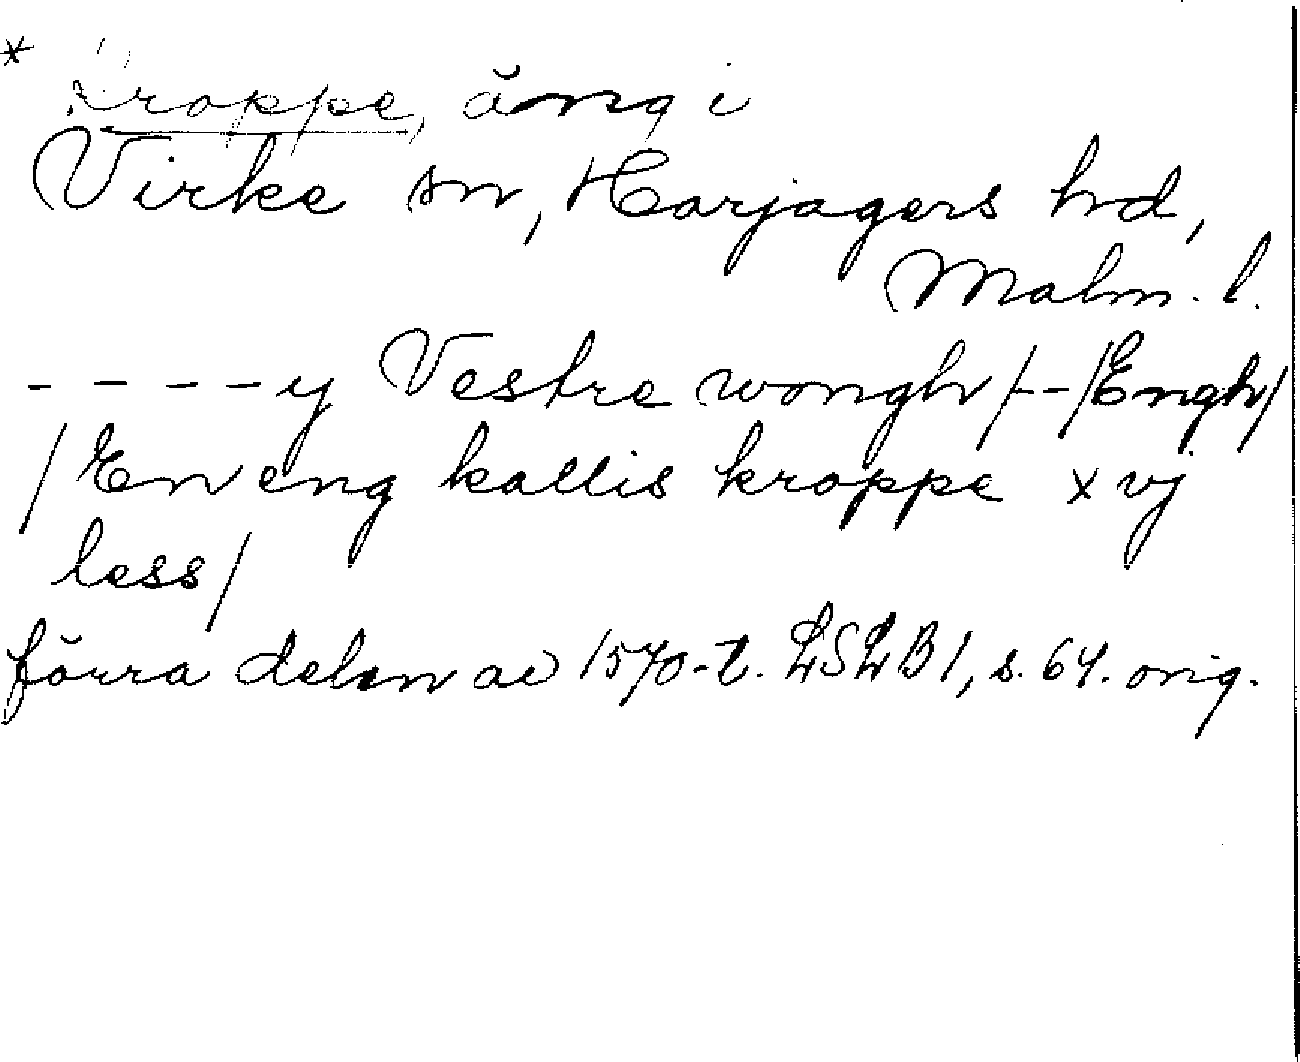 * Kroppe, äng i
Virke sn, Harjagers hd,
Malm. l.
- - - - y Vestre wongh/--/Engh/
/En eng kallis kroppe xvj
less/
förra delen av 1570-t. LSLB1, s. 64. orig.